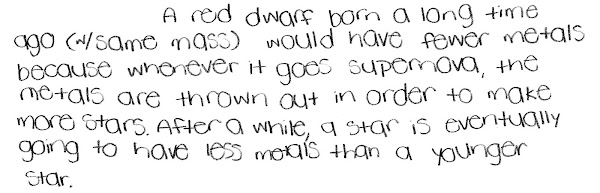 A red dwarf born a long time
ago (w/same mass) would have fewer metals
because whenever it goes supernova, the
metals are thrown out in order to make
more stars. After a while, a star is eventually
going to have less metals than a younger
star.